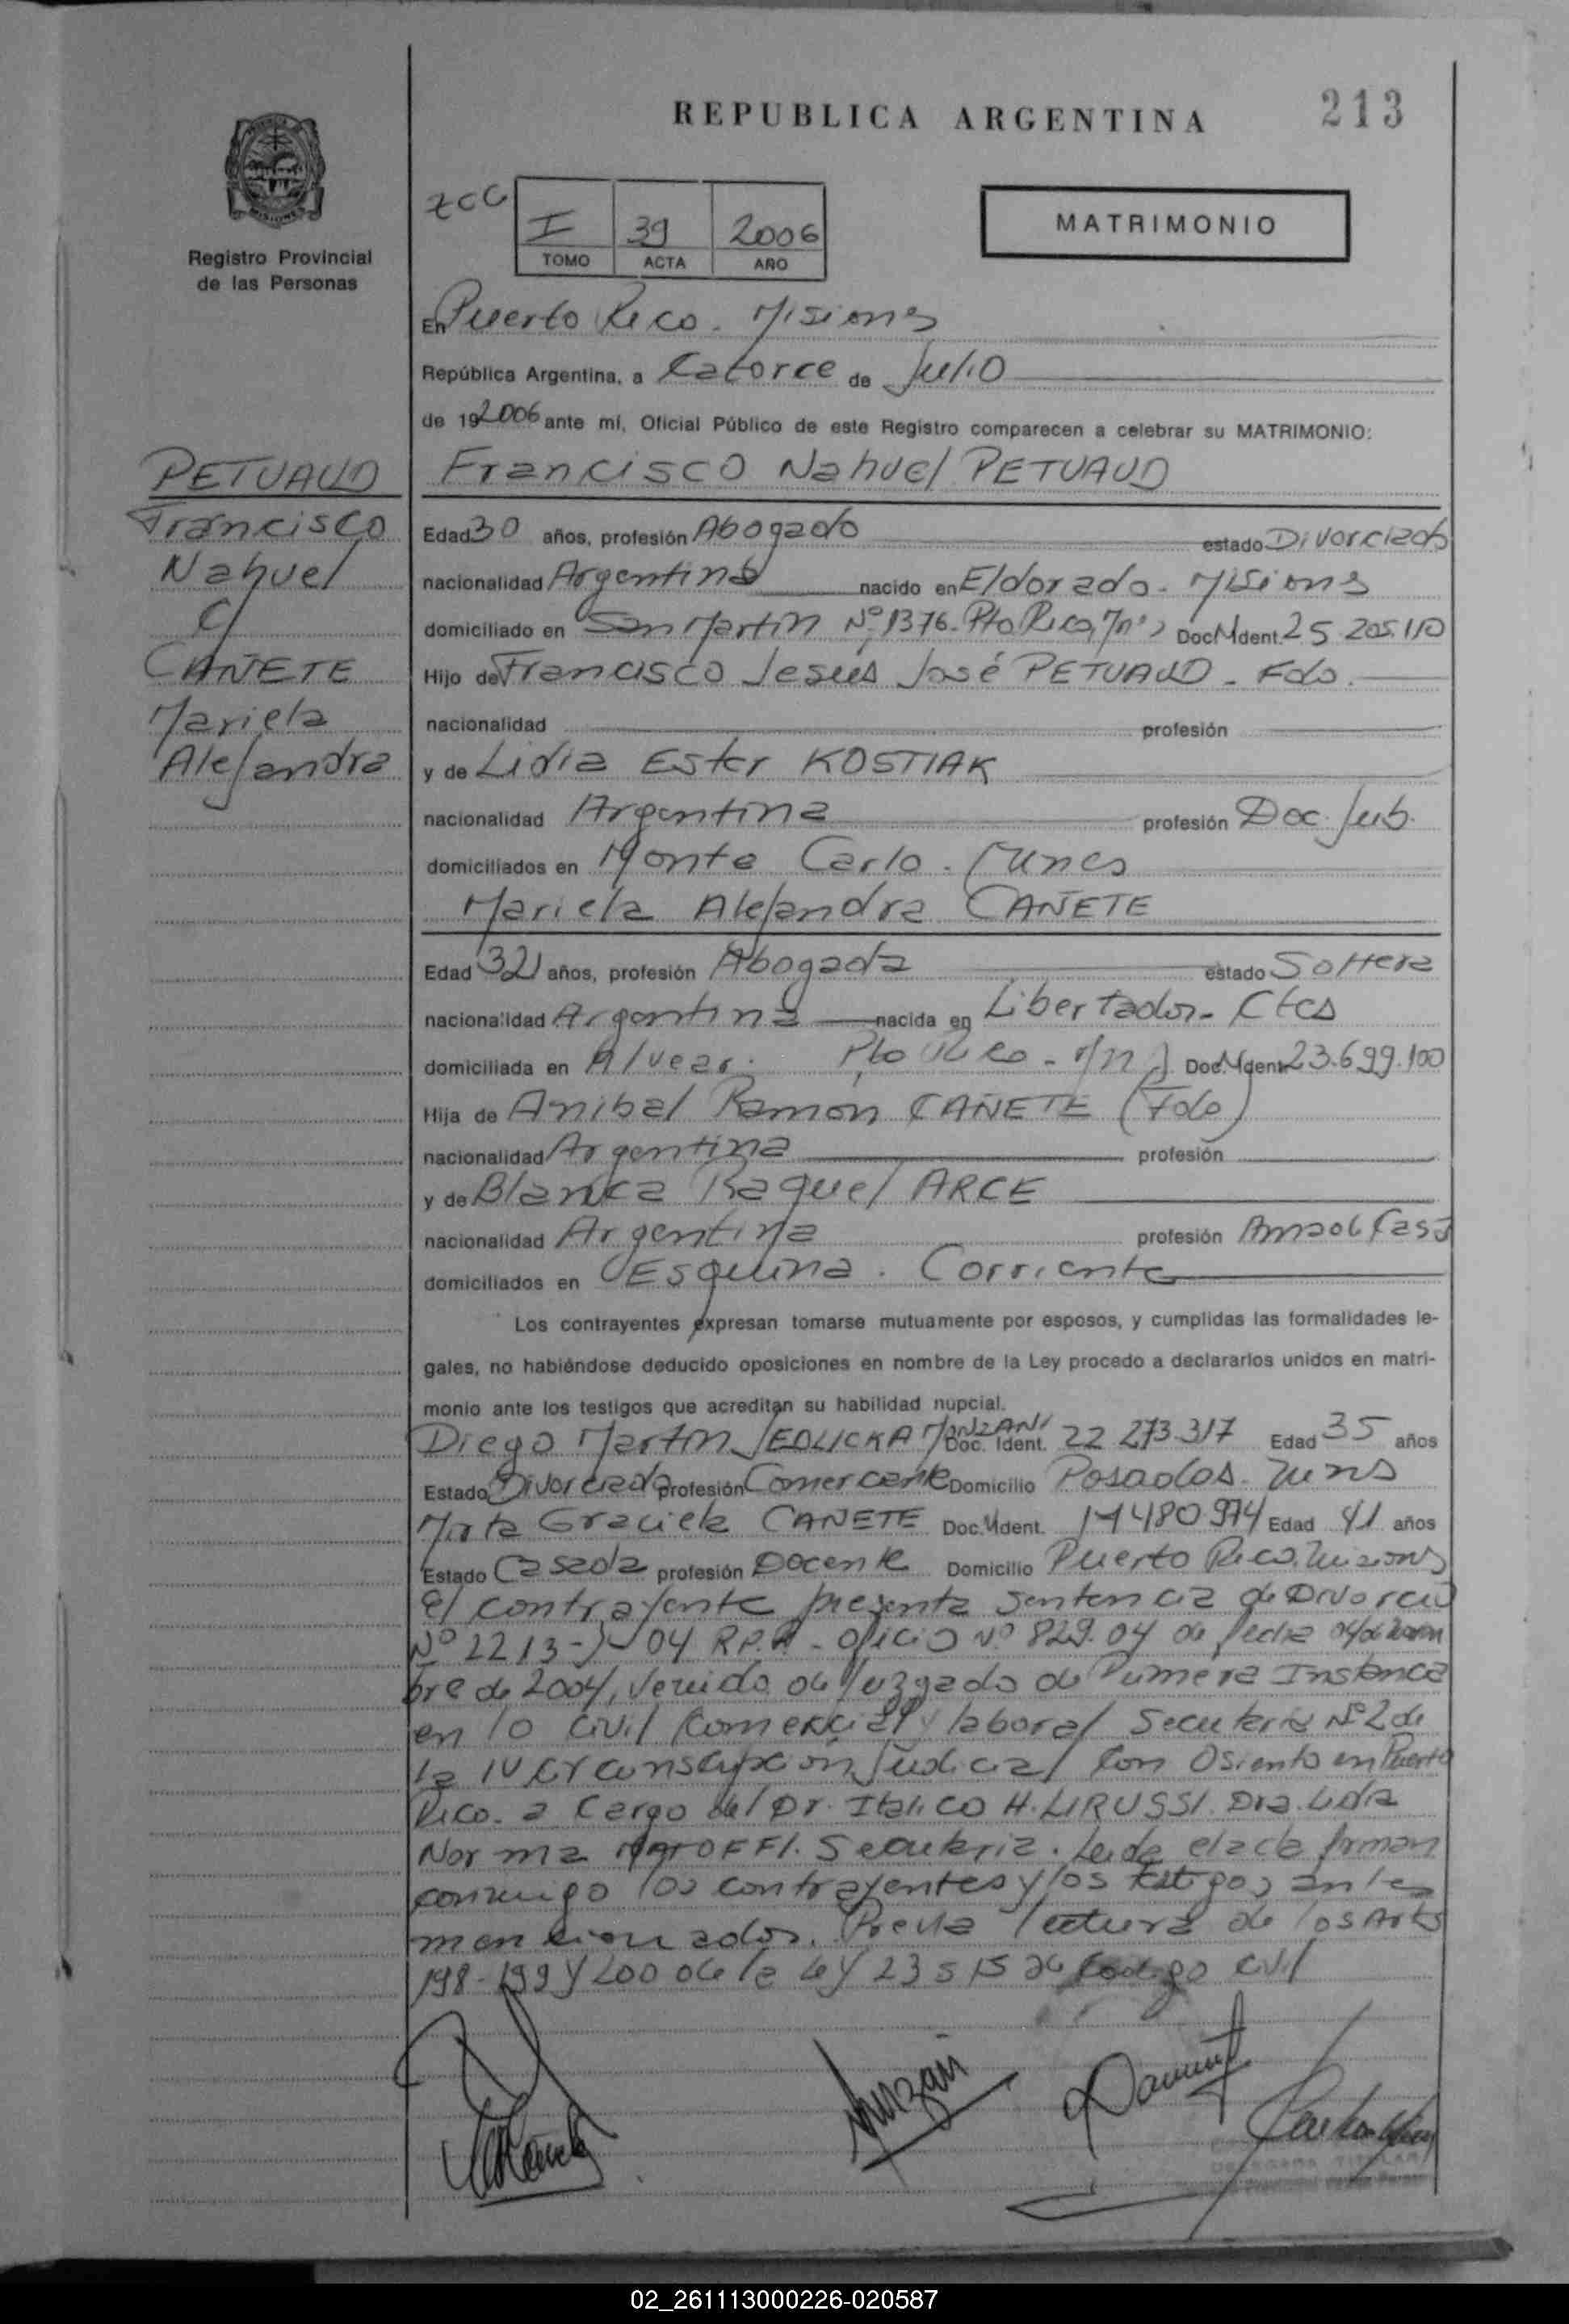 REPUBLICA ARGENTINA
213
Registro Provincial
de las Personas
I 39 2006
TOMO ACTA AÑO
MATRIMONIO
En Puerto Rico. Misiones
República Argentina, a Catorce de Julio
de 192006 ante mí, Oficial Público de este Registro comparecen a celebrar su MATRIMONIO:
PETUAUD
Francisco
Nahuel
C/
CAÑETE
Mariela
Alejandra
Francisco Nahuel PETUAUD
Edad 30 años, profesión Abogado estado Divorciado
nacionalidad Argentino nacido en Eldorado. Misiones
domiciliado en San Martín Nº 1376. Pto Rico, Mnes Doc.N.Ident. 25.205.110
Hijo de Francisco Jesús José PETUAUD - Fdo.
nacionalidad profesión
y de Lidia Ester KOSTIAK
nacionalidad Argentina profesión Doc. Jub.
domiciliados en Monte Carlo.
Mariela Alejandra CAÑETE
Edad 32 años, profesión Abogada estado Soltera
nacionalidad Argentina nacida en Libertador - Ctes
domiciliada en Alvear. Pto Rico - Doc.N.Ident 23.699.100
Hija de Anibal Ramón CAÑETE (Fdo)
nacionalidad Argentina profesión
y de Blanca Raquel ARCE
nacionalidad Argentina profesión Ama de Casa
domiciliados en Esquina. Corrientes
Los contrayentes expresan tomarse mutuamente por esposos, y cumplidas las formalidades le-
gales, no habiéndose deducido oposiciones en nombre de la Ley procedo a declararlos unidos en matri-
monio ante los testigos que acreditan su habilidad nupcial.
Diego Martín JEDLICKA MANZANI Doc. Ident. 22 273.317 Edad 35 años
Estado Divorciado profesión Comerciante Domicilio Posadas.
Mirta Graciela CAÑETE Doc.N.Ident. 480.974 Edad 41 años
Estado Casada profesión Docente Domicilio Puerto Rico. Misiones
El contrayente presenta sentencia de Divorcio
Nº 2213 - 04 R.P.P. - oficio Nº 829.04 de fecha
bre de 2004, venido de Juzgado de Primera Instancia
en lo Civil Comercial y laboral Secretaria Nº 2 de
la IV Circunscripción Judicial Con Asiento en Puerto
Rico. a Cargo del Dr. Italico H. LIRUSSI. Dra. Lidia
Norma Secretaria. Leida el acta firman
conmigo los contrayentes y los testigos antes
mencionados. Previa lectura de los Arts
198-199 y 200 de la ley 23515 de Codigo Civil
02_261113000226-020587